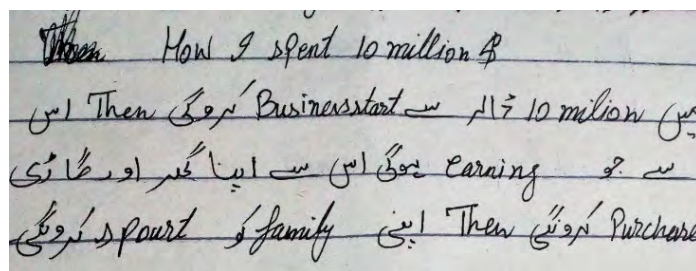 Then How I spent 10 million $
میں 10 milion ڈالر سے Business start کرونگی Then اس
سے جو earning ہوگی اس سے اپنا گھر اور گاڑی
Purchase کرونگی Then اپنی family کو spourt کرونگی